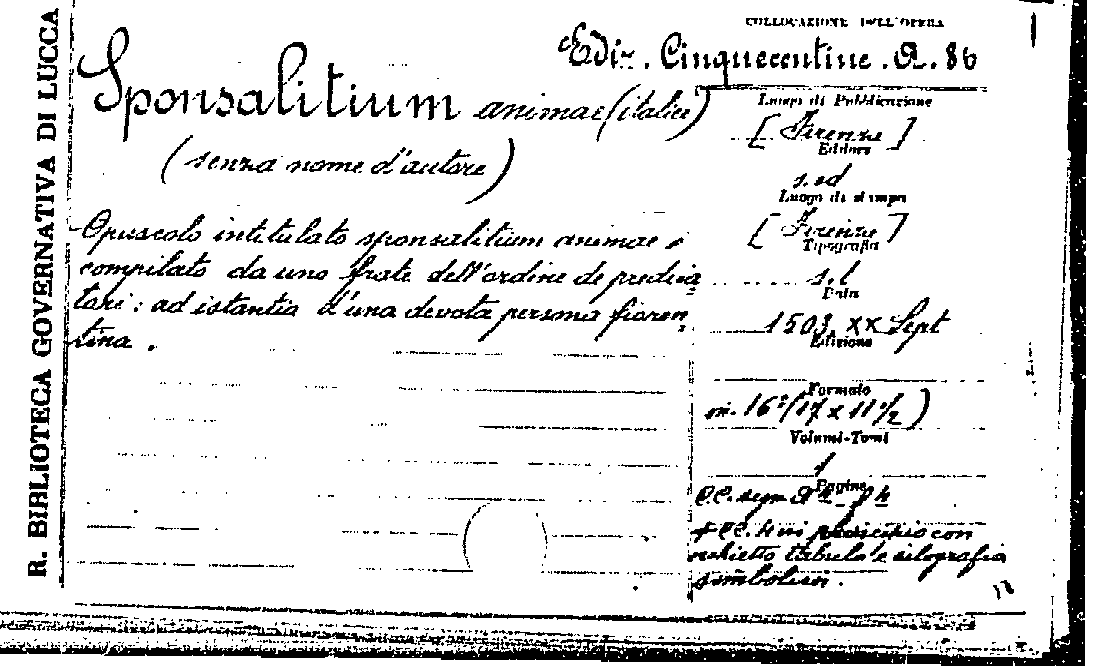 R. BIBLIOTECA GOVERNATIVA DI LUCCA
COLLOCAZIONE DELL'OPERA
Ediz. Cinquecentine. A. 86
Sponsalitium animae (italice)
(senza nome d'autore)
Opuscolo intitulato sponsalitium animae
compilato da uno frate dell'ordine de predica
tori: ad istantia d'una devota persona fioren
tina.
Luogo di Pubblicazione
[Firenze]
Editore
s. ed
Luogo di stampa
[Firenze]
Tipografia
s. t
Data
1503, XX Sept
Edizione
Formato
in. 16° (17 x 11 1/2)
Volumi-Tomi
1
Pagine
C.C. segn
+ CC. 4 in principio con
tabula e silografia
simbolica.